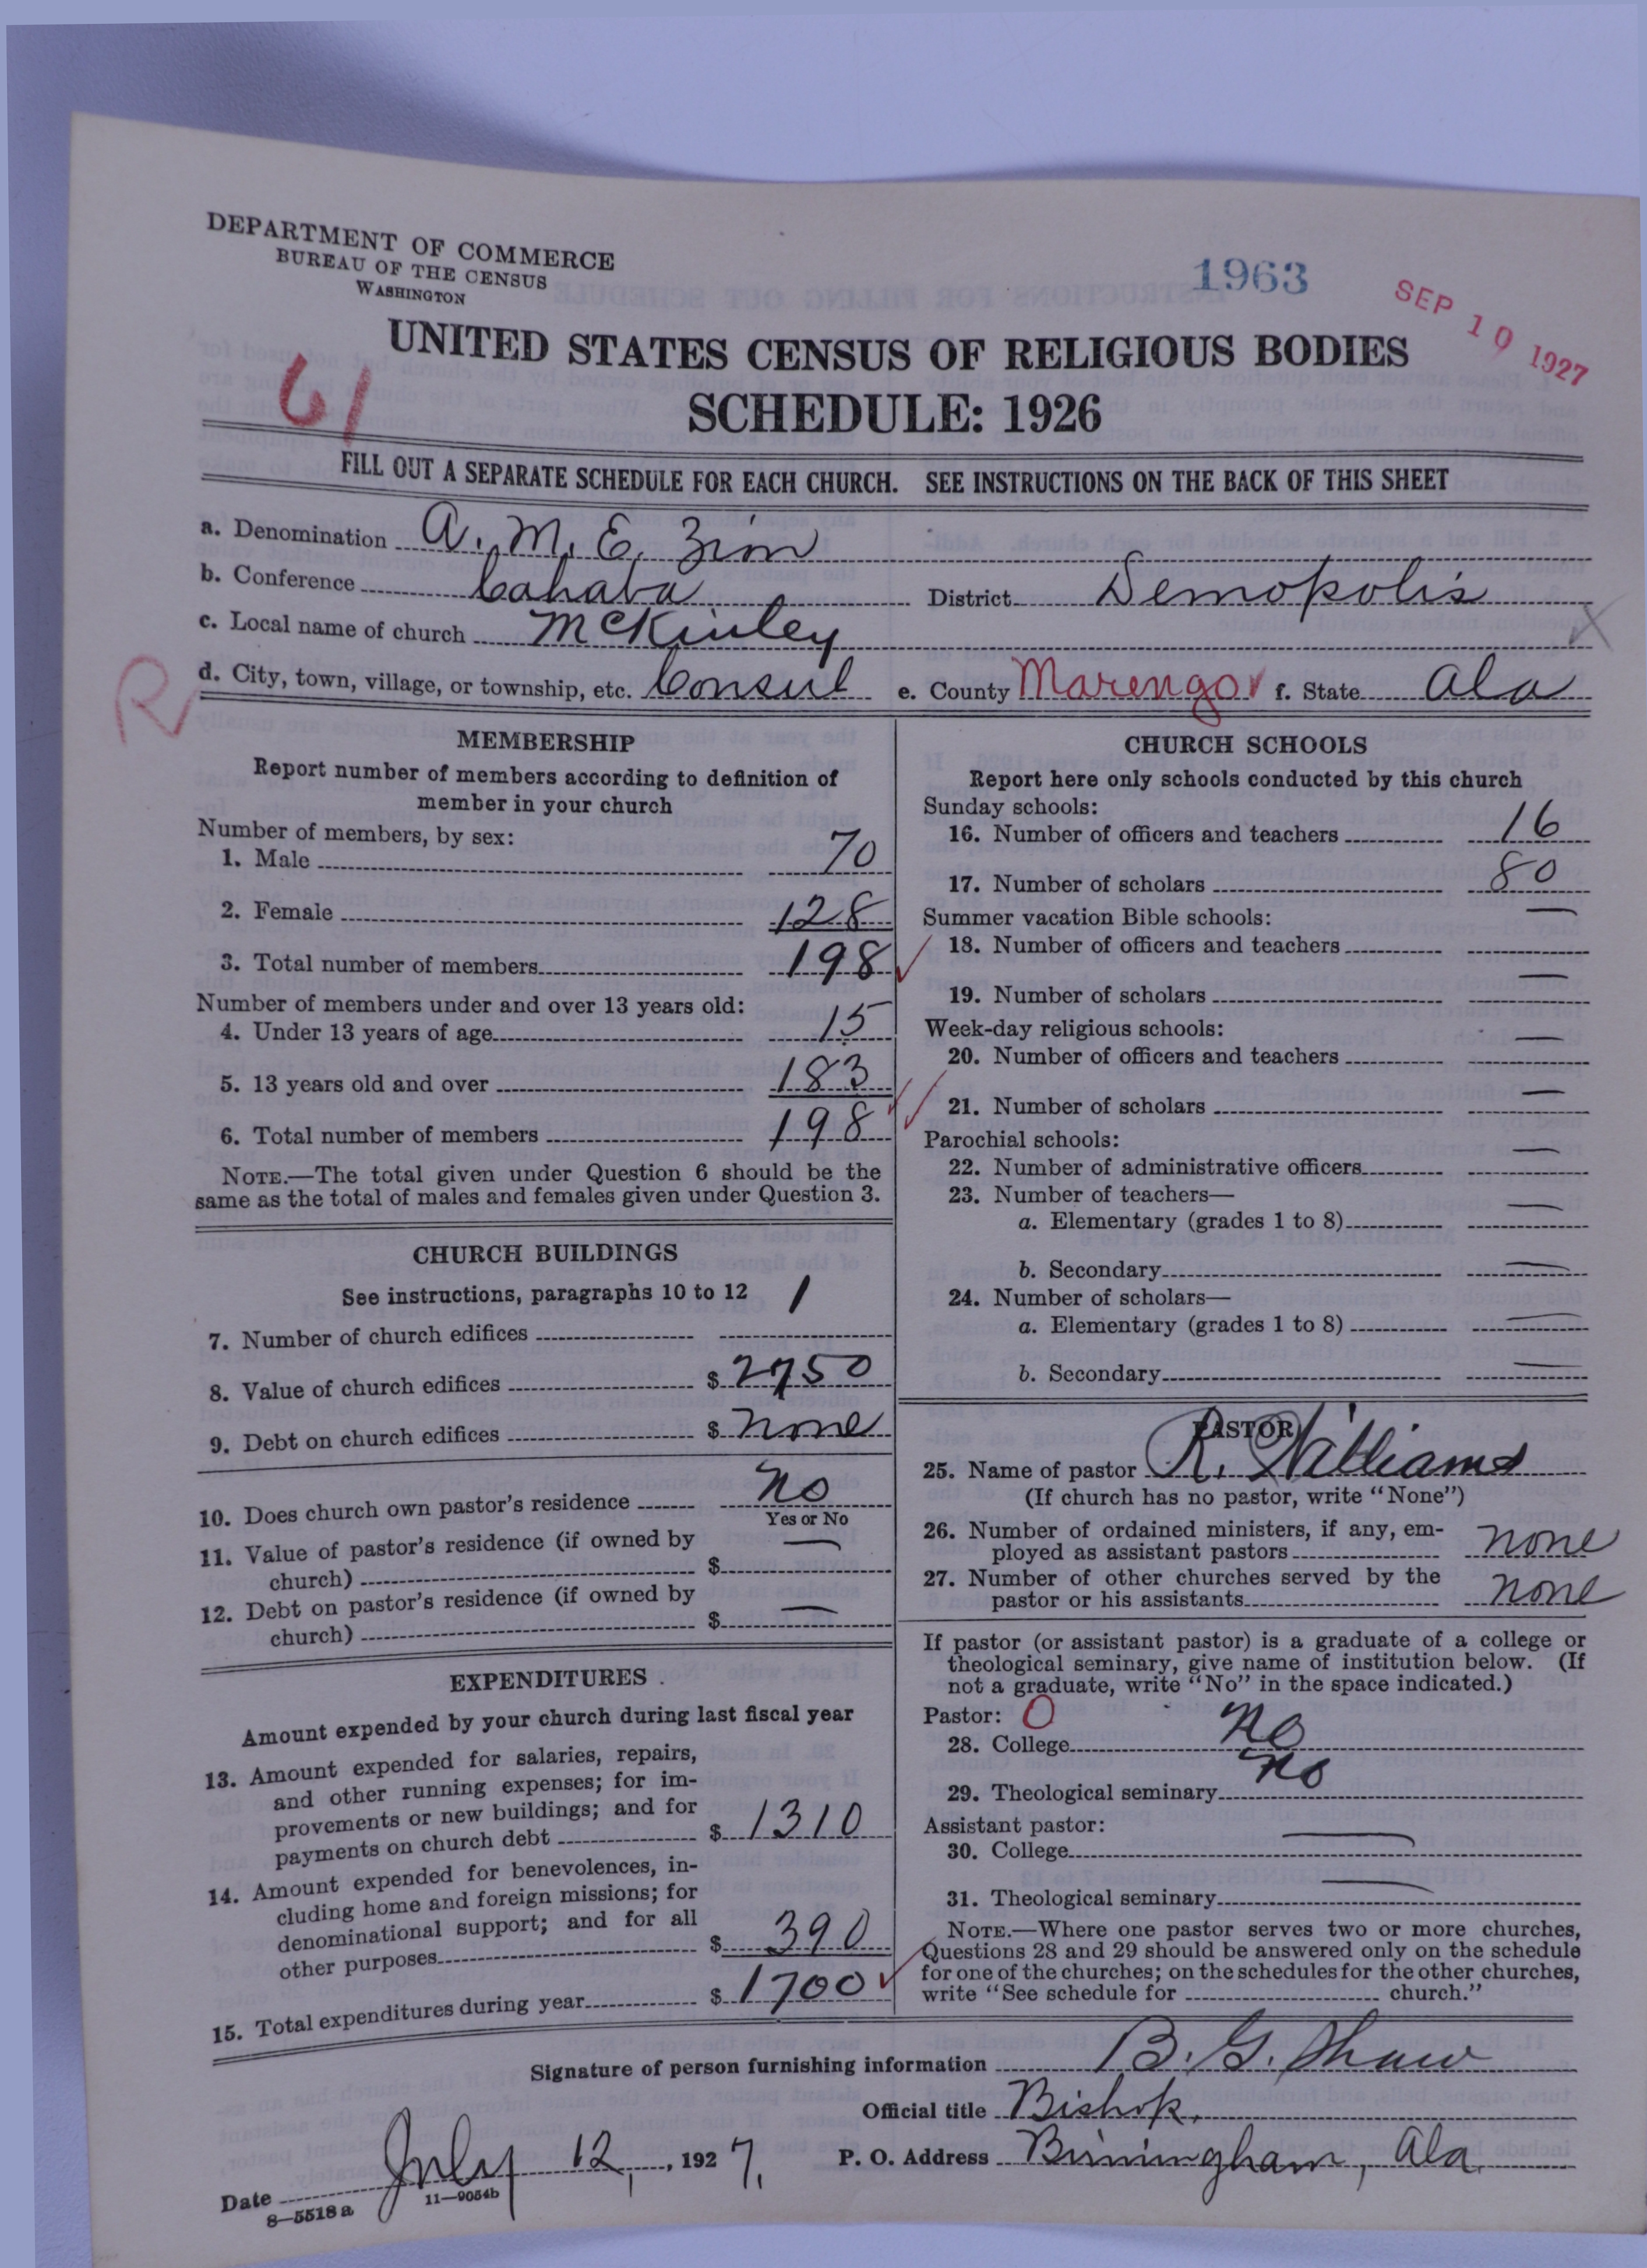 DEPARTMENT OF COMMERCE
BUREAU OF THE CENSUS
WASHINGTON
1963
SEP 10 1927
UNITED STATES CENSUS OF RELIGIOUS BODIES
SCHEDULE: 1926
61
FILL OUT A SEPARATE SCHEDULE FOR EACH CHURCH. SEE INSTRUCTIONS ON THE BACK OF THIS SHEET
a. Denomination A. M. E. Zion
b. Conference Cahaba District Demopolis
c. Local name of church McKinley
R
d. City, town, village, or township, etc. Consul e. County Marengo f. State Ala
MEMBERSHIP
Report number of members according to definition of
member in your church
Number of members, by sex:
1. Male 70
2. Female 128
3. Total number of members 198
Number of members under and over 13 years old:
4. Under 13 years of age 15
5. 13 years old and over 183
6. Total number of members 198
NOTE.—The total given under Question 6 should be the
same as the total of males and females given under Question 3.
CHURCH BUILDINGS
See instructions, paragraphs 10 to 12
7. Number of church edifices 1
8. Value of church edifices $ 2750
9. Debt on church edifices $ none
10. Does church own pastor's residence No
Yes or No
11. Value of pastor's residence (if owned by
church) $ —
12. Debt on pastor's residence (if owned by
church) $ —
EXPENDITURES
Amount expended by your church during last fiscal year
13. Amount expended for salaries, repairs,
and other running expenses; for im-
provements or new buildings; and for
payments on church debt $ 1310
14. Amount expended for benevolences, in-
cluding home and foreign missions; for
denominational support; and for all
other purposes $ 390
15. Total expenditures during year $ 1700
CHURCH SCHOOLS
Report here only schools conducted by this church
Sunday schools:
16. Number of officers and teachers 16
17. Number of scholars 80
Summer vacation Bible schools:
18. Number of officers and teachers —
19. Number of scholars —
Week-day religious schools:
20. Number of officers and teachers —
21. Number of scholars —
Parochial schools:
22. Number of administrative officers —
23. Number of teachers—
a. Elementary (grades 1 to 8) —
b. Secondary —
24. Number of scholars—
a. Elementary (grades 1 to 8) —
b. Secondary —
PASTOR
25. Name of pastor R. Williams
(If church has no pastor, write "None")
26. Number of ordained ministers, if any, em-
ployed as assistant pastors none
27. Number of other churches served by the
pastor or his assistants none
If pastor (or assistant pastor) is a graduate of a college or
theological seminary, give name of institution below. (If
not a graduate, write "No" in the space indicated.)
Pastor: 0
28. College No
29. Theological seminary No
Assistant pastor:
30. College —
31. Theological seminary —
NOTE.—Where one pastor serves two or more churches,
Questions 28 and 29 should be answered only on the schedule
for one of the churches; on the schedules for the other churches,
write "See schedule for church."
Signature of person furnishing information B. G. Shaw
Official title Bishop.
Date July 12, 1927. P. O. Address Birmingham, Ala.
8—5518a 11—9054b